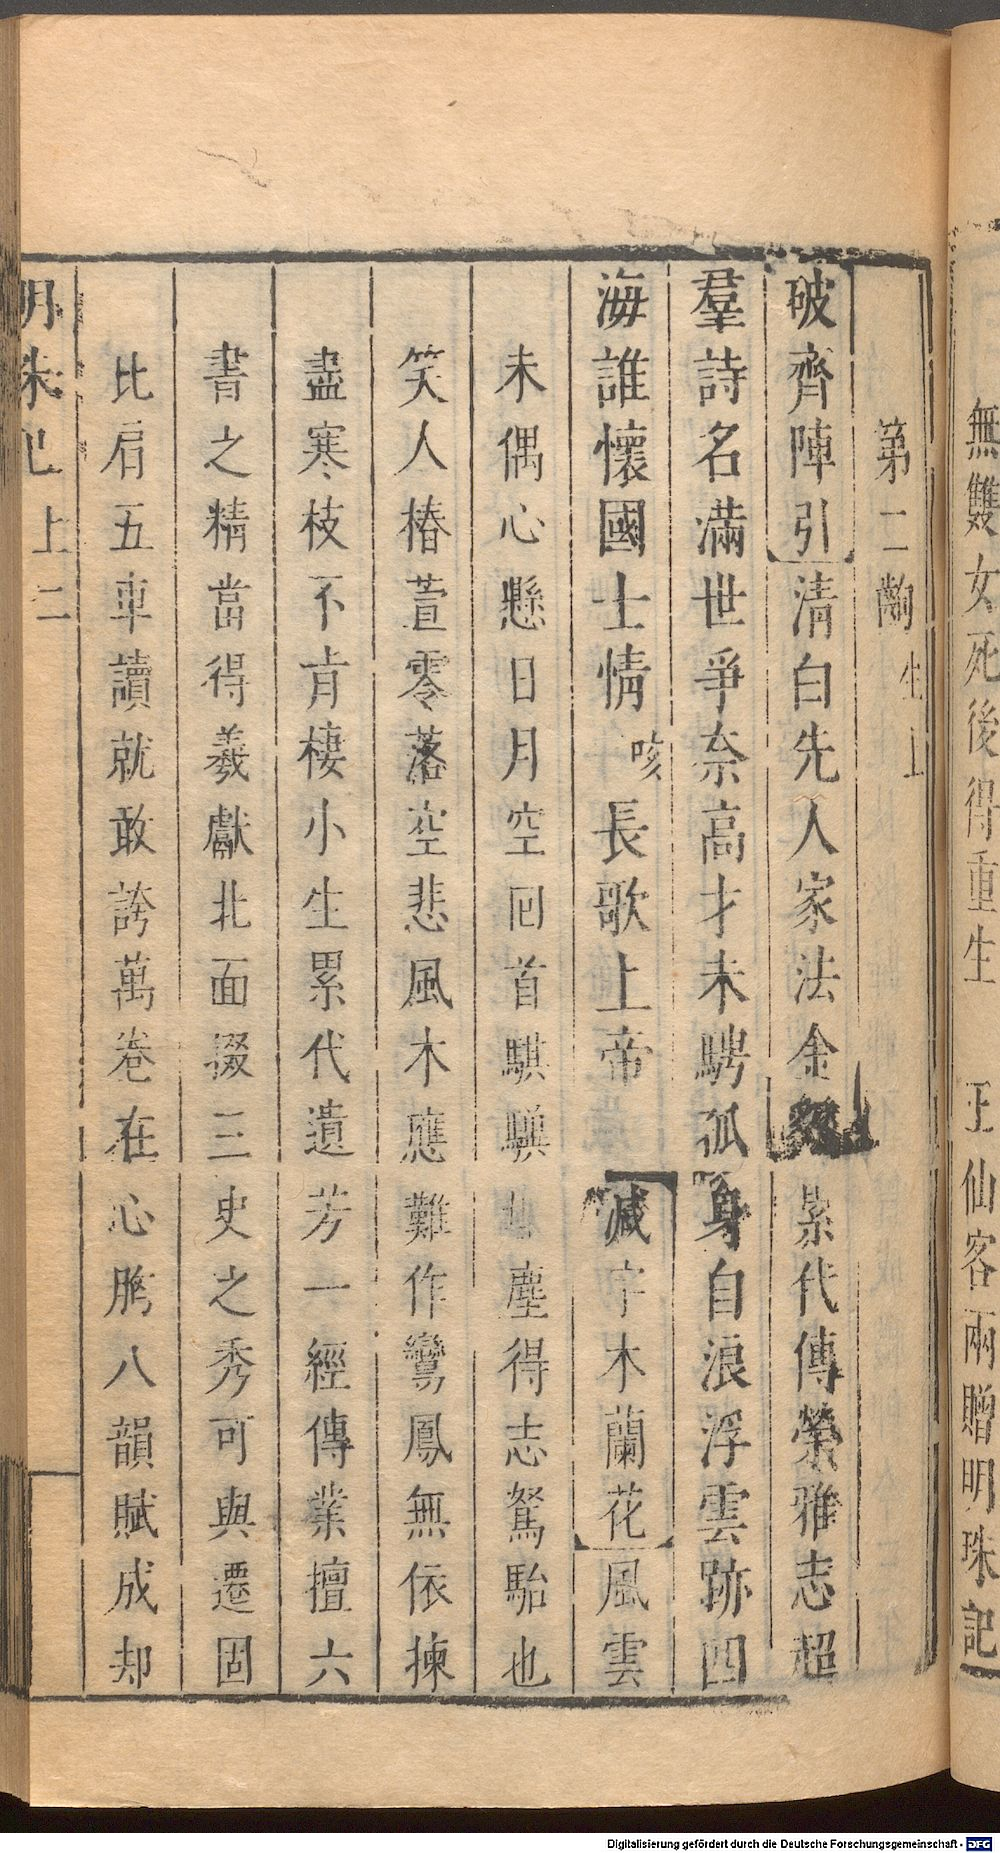 無雙女死後得重生　王仙客兩贈明珠記
第二齣　生上
破齊陣引清白先人家法金　累代傳榮雅志超
羣詩名滿世爭奈高才未騁孤身自浪浮雲跡四
海誰懷國士情　咳長歌上帝　減字木蘭花風雲
未偶心懸日月空回首騏驥　塵得志駑駘也
笑人椿萱零落空悲風木應難作鸞鳳無依揀
盡寒枝不肯棲小生累代遺芳一經傳業擅六
書之精當得羲獻北面掇三史之秀可與遷固
比肩五車讀就敢誇萬卷在心胸八韻賦成却
明朱記　上　二
Digitalisierung gefördert durch die Deutsche Forschungsgemeinschaft - DFG